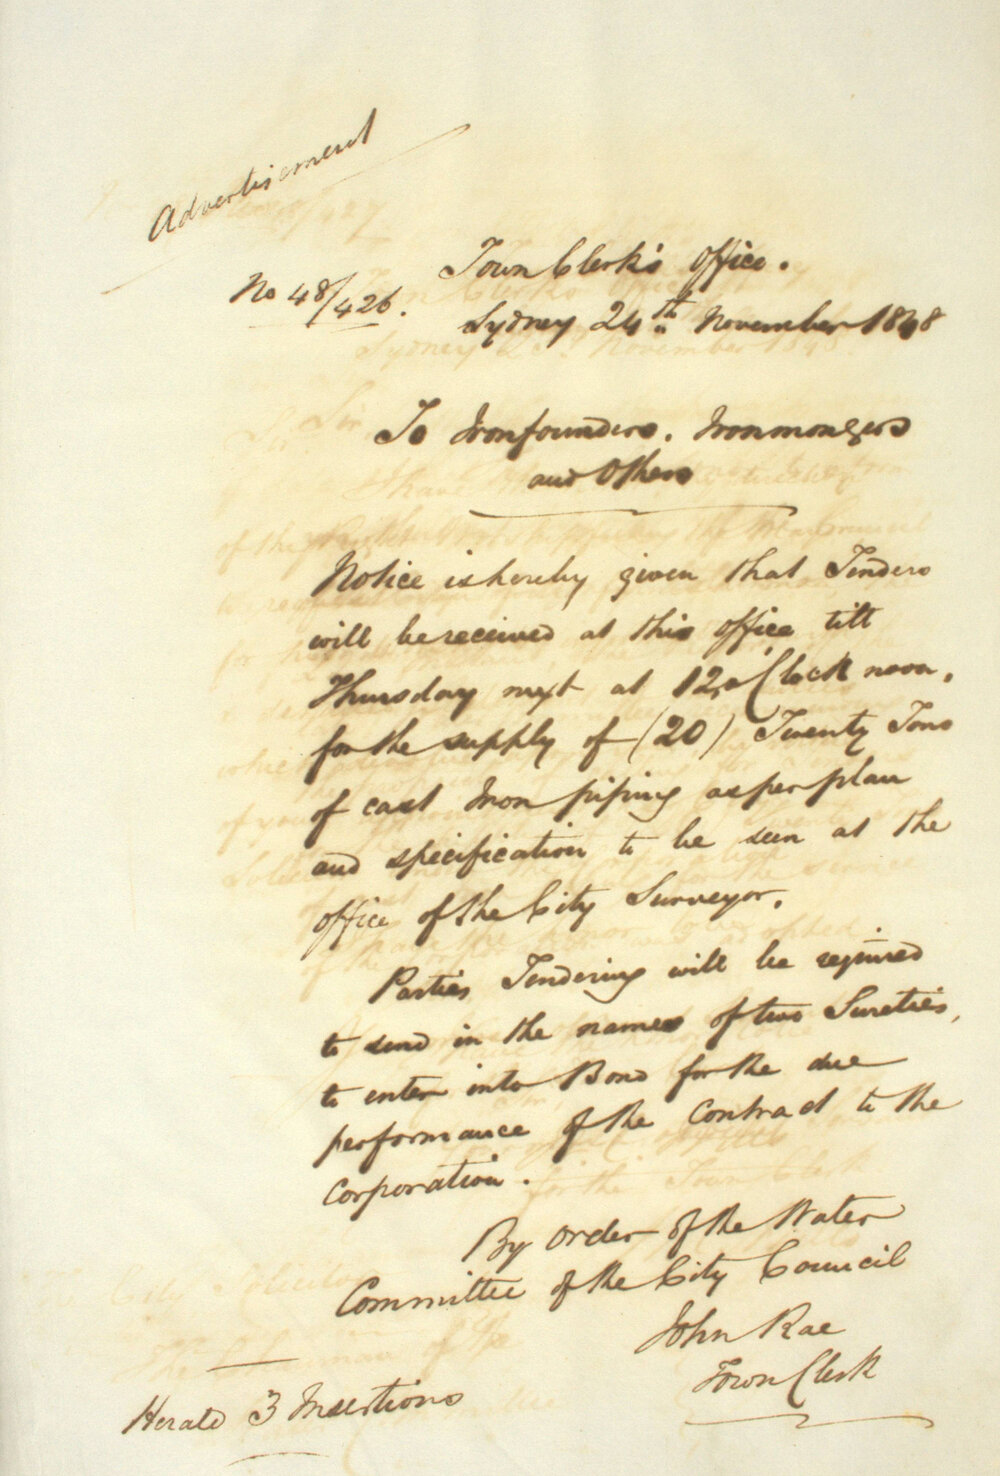 Advertisement
No 48/426.
Town Clerk's Office.
Sydney 24th November 1848
To Ironfounders, Ironmongers
and Others
Notice is hereby given that Tenders
will be received at this office till
Thursday next at 12, o'Clock noon,
for the supply of (20) Twenty Tons
of cast Iron piping as per plan
and specification to be seen at the
office of the City Surveyor.
Parties Tendering will be required
to send in the names of two Sureties,
to enter into Bond for the due
performance of the Contract to the
Corporation.
By order of the Water
Committee of the City Council
John Rae
Town Clerk
Herald 3 Insertions